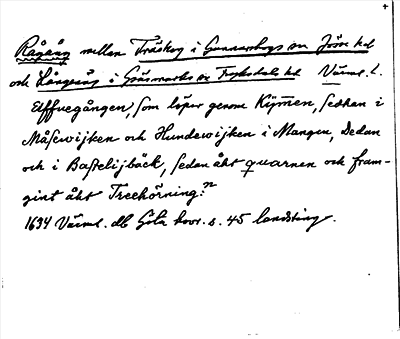 Rågång mellan Träskog i Gunnarskogs sn Jösse hd
och Långvåg i Gräsmarks sn Fryksdals hd Värml. l.
Elffuegången, som löper genom Kijmen, sedhan i
Måsewijken och Hundewijken i Mangen, Dedan
och i Bastelijbäck, sedan åht quarnen och fram-
gint åht Treehörning:n
1634 Värml. db Göta hovr. s. 45 landsting.